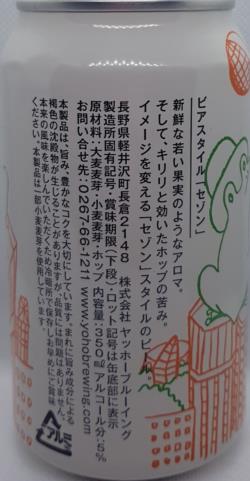 ビアスタイル「セゾン」
新鮮な若い果実のようなアロマ。
そして、キリリと効いたホップの苦み。
イメージを変える「セゾン」スタイルのビール。
長野県軽井沢町長倉2148 株式会社 ヤッホーブルーイング
製造所固有記号・賞味期限(下段)・ロット記号は缶底部に表示
原材料:大麦麦芽・小麦麦芽・ホップ 内容量:350ml アルコール分:5%
お問い合せ先:0267-66-1211 www.yohobrewing.com
本製品は、旨み、豊かなコクを大切にしています。まれに旨み成分による
褐色の沈殿物が生じることがありますが、品質には問題はありません。
本来の風味を楽しんでいただくため冷暗所で保存し、お早めにご賞味
ください。本製品は一部小麦麦芽を使用しています。
アルミ